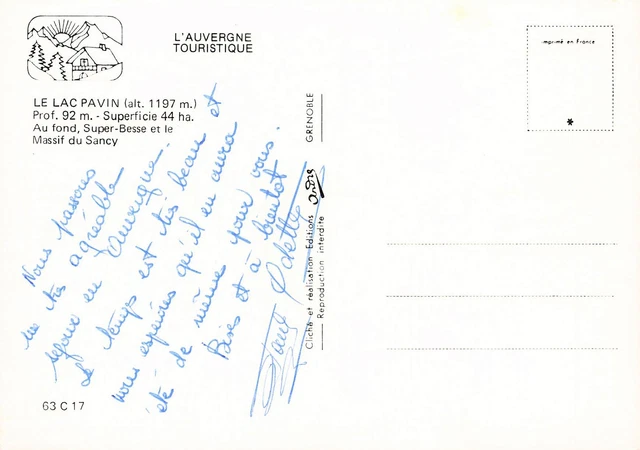 L'AUVERGNE
TOURISTIQUE
imprimé en France
*
LE LAC PAVIN (alt. 1197 m.)
Prof. 92 m. - Superficie 44 ha.
Au fond, Super-Besse et le
Massif du Sancy
Nous passons
un très agréable
séjour en Auvergne.
Le temps est très beau et
nous espérons qu'il en aura
été de même pour vous.
Bises et à bientôt
Odette
63 C 17
Cliché et réalisation Editions André GRENOBLE
Reproduction interdite